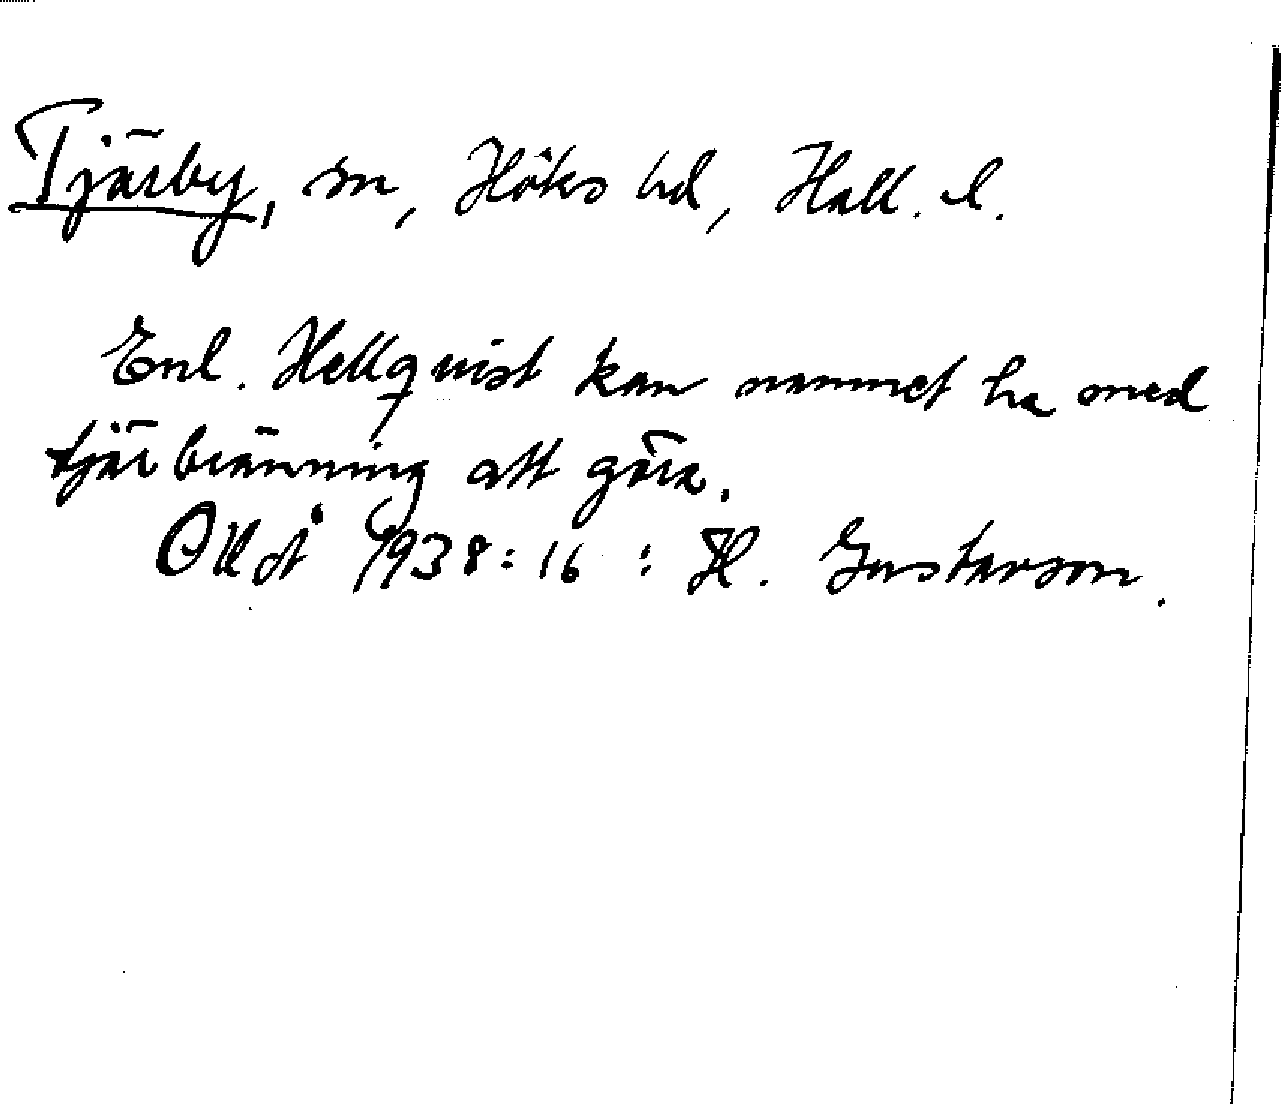 Tjärby, sn, Höks hd, Hall. l.
Enl. Hellquist kan namnet ha med
tjärbränning att göra.
OUÅ 1938: 16 : H. Gustavson.